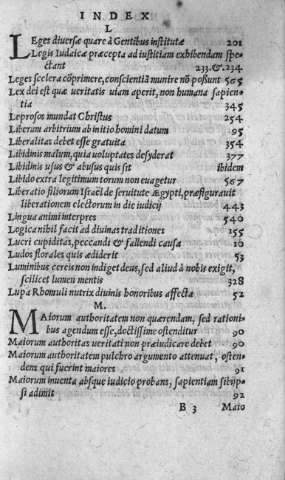 INDEX
L
LEges diuersæ quare à Gentibus institutæ 201
Legis Iudaicæ præcepta ad iustitiam exhibendam spe
ctant 233.&.234
Leges scelera cōprimere, conscientiā munire nō possunt 565
Lex dei est quæ ueritatis uiam aperit, non humana sapien
tia 345
Leprosos mundat Christus 254
Liberum arbitrium ab initio homini datum 95
Liberalitas debet esse gratuita 354
Libidinis malum, quia uoluptates desyderat 377
Libidinis usus & abusus quis sit ibidem
Libido extra legitimum torum non euagetur 567
Liberatio filiorum Israël de seruitute Ægypti, præfigurauit
liberationem electorum in die iudicij 443
Lingua animi interpres 540
Logica nihil facit ad diuinas traditiones 155
Lucri cupiditas, peccandi & fallendi causa 10
Ludos florales quis ædiderit 53
Luminibus cereis non indiget deus, sed aliud à nobis exigit,
scilicet lumen mentis 328
Lupa Rhomuli nutrix diuinis honoribus affecta 52
M.
MAiorum authoritatem non quærendam, sed rationi-
bus agendum esse, doctissime ostenditur 90
Maiorum authoritas ueritati non præiudicare debet 90
Maiorum authoritatem pulchro argumento attenuat, osten-
dens qui fuerint maiores 91
Maiorum inuenta absque iudicio probans, sapientiam sibijp-
si adimit 92
B 3 Maio